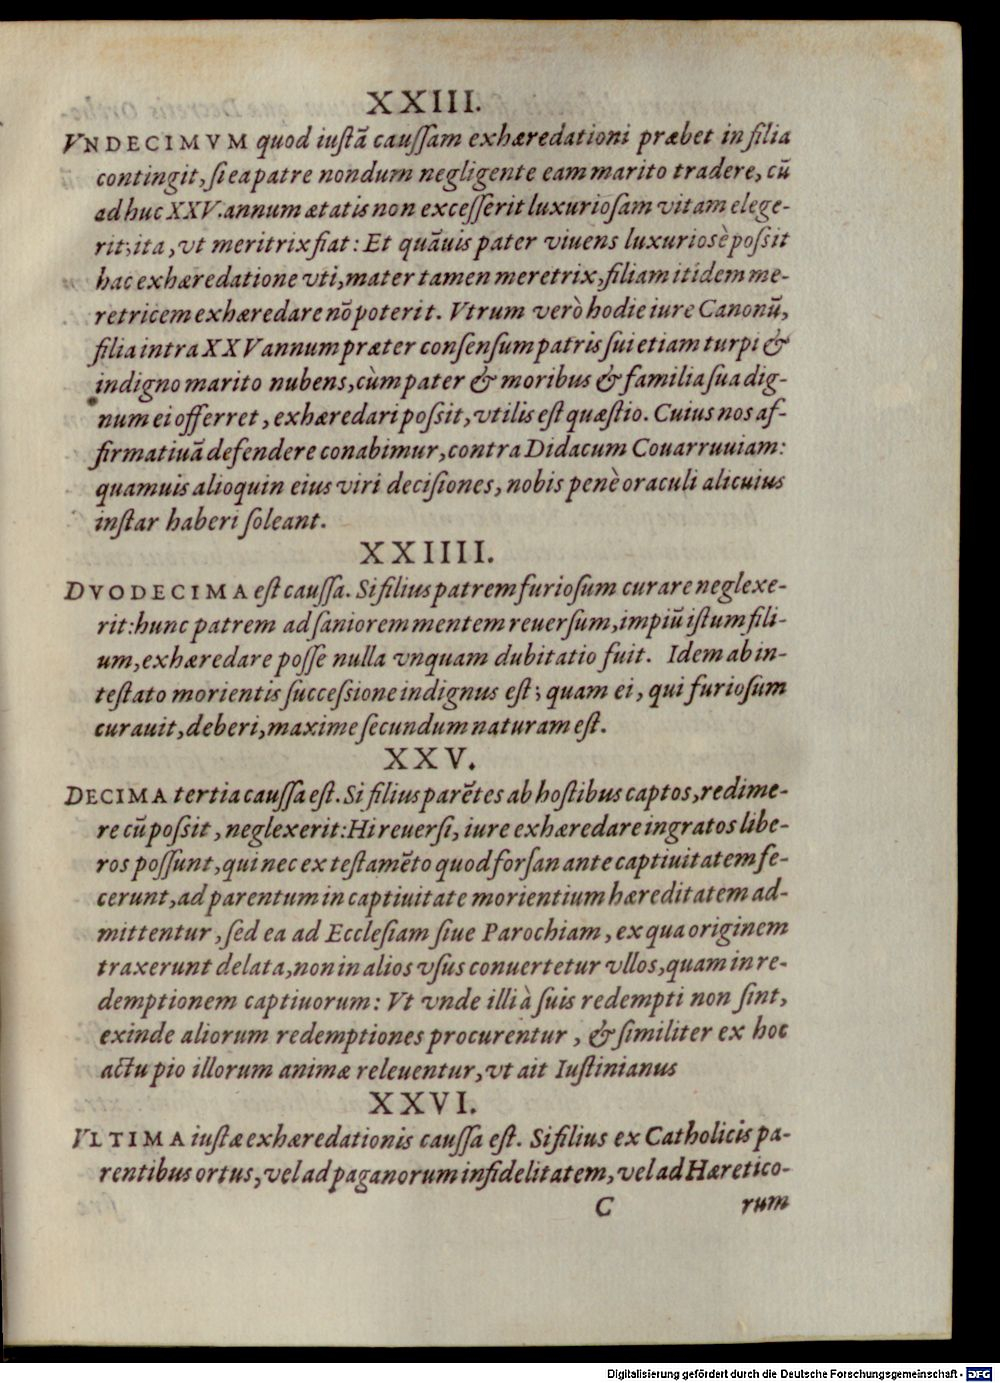 XXIII.
VNDECIMVM quod iustã caussam exhæredationi præbet in filia
contingit, si ea patre nondum negligente eam marito tradere, cũ
adhuc XXV. annum ætatis non excesserit luxuriosam vitam elege-
rit; ita, vt meritrix fiat: Et quãuis pater viuens luxuriosè possit
hac exhæredatione vti, mater tamen meretrix, filiam itidem me-
retricem exhæredare nõ poterit. Vtrum verò hodie iure Canonũ,
filia intra XXV annum præter consensum patris sui etiam turpi &
indigno marito nubens, cùm pater & moribus & familia sua dig-
num ei offerret, exhæredari possit, vtilis est quæstio. Cuius nos af-
firmatiuã defendere conabimur, contra Didacum Couarruuiam:
quamuis alioquin eius viri decisiones, nobis penè oraculi alicuius
instar haberi soleant.
XXIIII.
DVODECIMA est caussa. Si filius patrem furiosum curare neglexe-
rit: hunc patrem ad saniorem mentem reuersum, impiũ istum fili-
um, exhæredare posse nulla vnquam dubitatio fuit. Idem ab in-
testato morientis successione indignus est; quam ei, qui furiosum
curauit, deberi, maxime secundum naturam est.
XXV.
DECIMA tertia caussa est. Si filius parẽtes ab hostibus captos, redime-
re cũ possit, neglexerit: Hi reuersi, iure exhæredare ingratos libe-
ros possunt, qui nec ex testamẽto quod forsan ante captiuitatem fe-
cerunt, ad parentum in captiuitate morientium hæreditatem ad-
mittentur, sed ea ad Ecclesiam siue Parochiam, ex qua originem
traxerunt delata, non in alios vsus conuertetur vllos, quam in re-
demptionem captiuorum: Vt vnde illi à suis redempti non sint,
exinde aliorum redemptiones procurentur, & similiter ex hoc
actu pio illorum animæ releuentur, vt ait Iustinianus
XXVI.
VLTIMA iustæ exhæredationis caussa est. Si filius ex Catholicis pa-
rentibus ortus, vel ad paganorum infidelitatem, vel ad Hæretico-
C rum
Digitalisierung gefördert durch die Deutsche Forschungsgemeinschaft - DFG